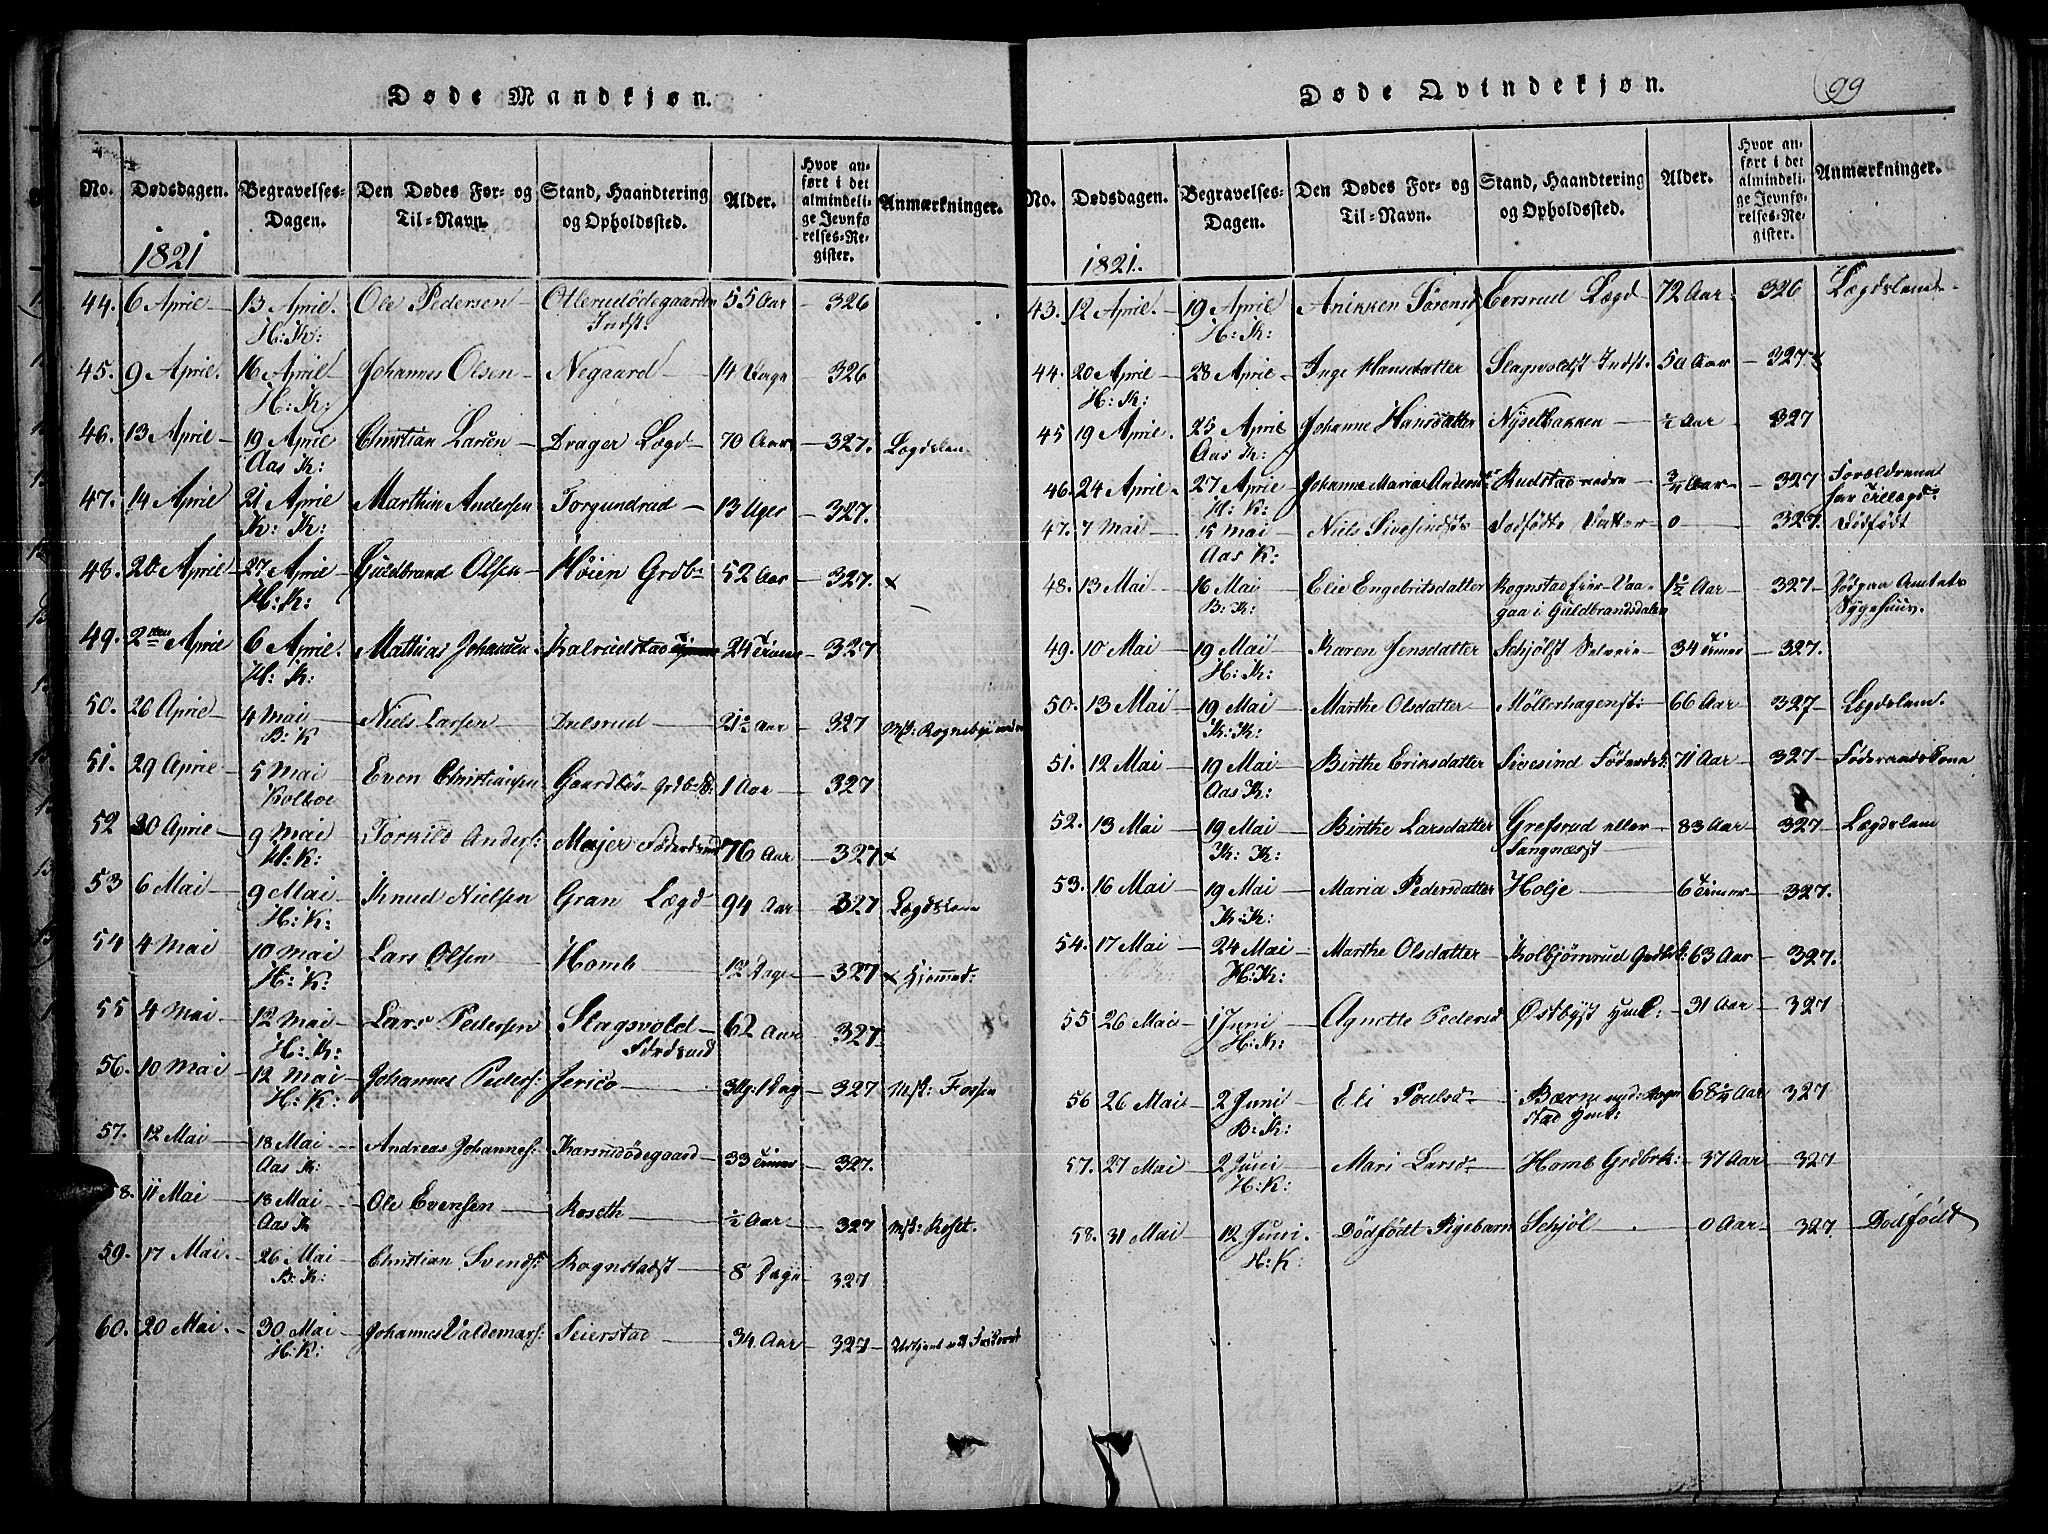 Døde Mandkjøn.
No. Dødsdagen. Begravelses-Dagen. Den Dødes For- og Til-Navn. Stand, Haandtering og Opholdssted. Alder. Hvor anført i det almindelige Jevnførelses-Register. Anmærkninger.
1821
44. 6 April 13 April. Ole Pedersen Ollerudødegaarden 55 Aar 326
H: K: Indst:
45. 9 April. 16 April Johannes Olsen Negaard 14 326
H: K:
46. 13 April 19 April Christian Larsen Drager Lægd 70 Aar 327. Lægdslem
Aas K:
47. 14 April 21 April Marthin Andersen Torgundrud 13 Uger 327.
K: K:
48. 20 April 27 April Guldbrand Olsen Høien Grdb: 52 Aar 327. x
H: K:
49. 2den April 6 April. Mathias Johansen Kalrudstad 24 Timer 327
H: K:
50. 26 April 4 Mai Niels Larsen Dulsrud 21½ Aar 327
B: K
51. 29 April 5 Mai Even Christiansen Gaardløs Grdb: 1 Aar 327
Kolboe
52 30 April 9 Mai Torkild Anders: Meijer 76 Aar 327 x
H: K:
53 6 Mai 9 Mai Knud Nielsen Gran Lægd 94 Aar 327 Lægdslem
H: K:
54 4 Mai 10 Mai Lars Olsen Homb 12 Dage 327 x Hjemmed:
H: K:
55 4 Mai 12 Mai Lars Pedersen Slagsvold 62 Aar 327
H: K:
56. 10 Mai 12 Mai Johannes Peders: Jerico 327
H: K:
57. 12 Mai 18 Mai Andreas Johannes: Karsrudødegaard 33 Timer 327.
Aas K:
58. 11 Mai 18 Mai Ole Evensen Roseth ½ Aar 327 Roset.
Aas K
59. 17 Mai. 26 Mai Christian Svends: Rognstadst 8 Dage 327
B: K:
60. 20 Mai. 30 Mai Johannes Valdemars: Seierstad 34 Aar 327
H: K:
Døde Qvindekjøn.
99
No. Dødsdagen. Begravelses-Dagen. Den Dødes For- og Til-Navn. Stand, Haandtering og Opholdssted. Alder. Hvor anført i det almindelige Jevnførelses-Register. Anmærkninger.
1821.
43. 12 April. 19 April Anikken Sørensd Eersrud Lægd 72 Aar 326 Lægdslem
H: K:
44. 20 April 28 April Inge Hansdatter Slagvoldst Indst. 50 Aar 327 x
H: K:
45 19 April. 25 April Johanne Hansdatter Nysetbakken ½ Aar 327
Aas K:
46. 24 April. 27 April Johanne Maria Andersd: Rudstad nedre ¾ Aar 327 Forældrene
H: K: har
47. 7 Mai 15 Mai Niels Sivesindsds dødfødte Datter 0 327. Dødfødt
Aas K:
48. 13 Mai 16 Mai Elie Engebritsdatter Rognstad fra Vaa- 1½ Aar 327 Død paa Amtets
B: K: gaa i Guldbrandsdalen Sygehuus.
49. 10 Mai 19 Mai Karen Jensdatter Schjølst 34 Timer 327.
H: K:
50. 13 Mai 19 Mai Marthe Olsdatter Møllerhagenst: 66 Aar 327 Lægdslem.
K: K:
51. 12 Mai 19 Mai Birthe Eriksdatter Sivesind 71 Aar 327 Føderaadskone
Aas K:
52. 13 Mai 19 Mai Birthe Larsdatter Grefsrud eller 83 Aar 327 Lægdslem
K: K: Sangnæsst
53. 16 Mai 19 Mai Maria Pedersdatter Holje 6 Timer 327.
K: K:
54. 17 Mai 24 Mai Marthe Olsdatter Kolbjørnrud Grdbk: 63 Aar 327.
H: K:
55 26 Mai 1 Juni Agnette Pedersd Østbyst 31 Aar 327
H: K:
56 26 Mai 2 Juni Eli Poelsd Bærn 68½ Aar 327
B: K:
57. 27 Mai 2 Juni Mari Larsd Homb Grdbrk: 37 Aar 327
H: K:
58. 31 Mai 12 Juni Dødfødt Pigebarn Schjøl 0 Aar 327 Dødfødt
H: K: